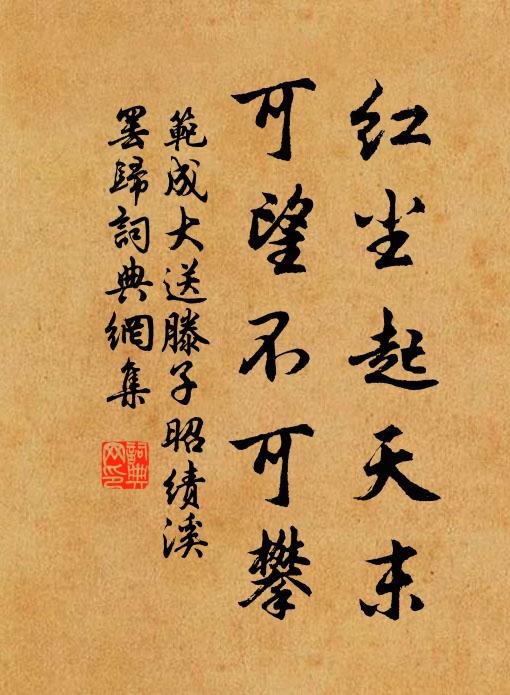 红尘起天末
可望不可攀
範成大送滕子昭績溪
罢歸詞典網集
詞典网印